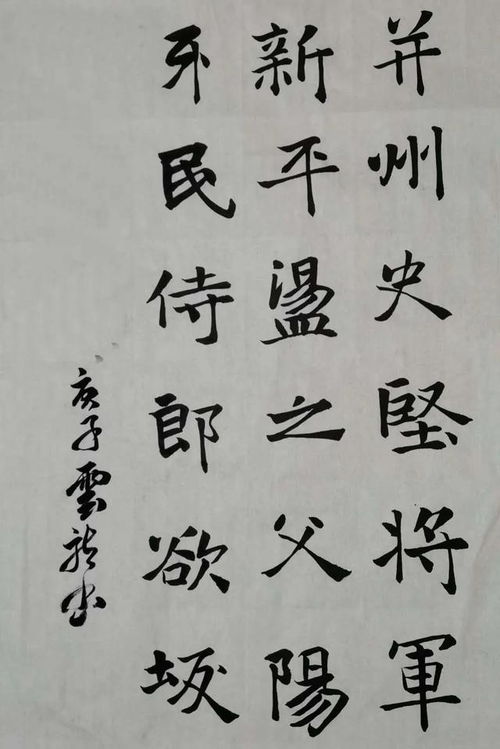 并州史堅将軍
新平盪之父陽
民侍郎欲坂
庚子雲龍书